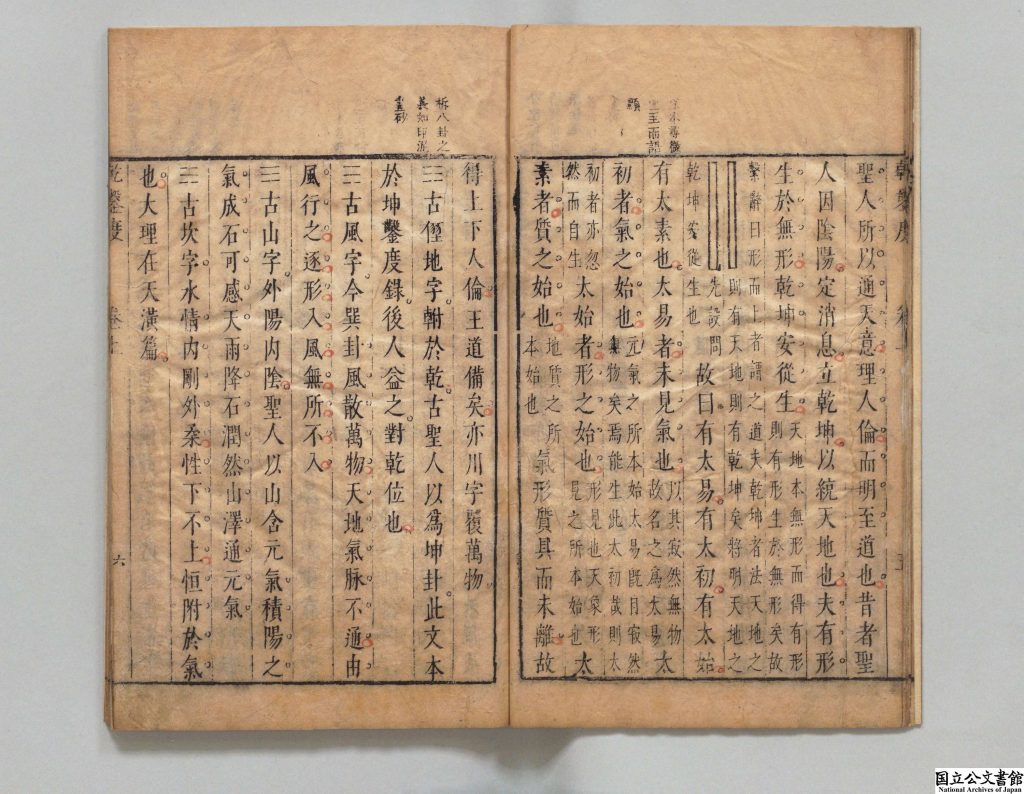 聖人所以通天意理人倫而明至道也昔者聖
人因陰陽定消息立乾坤以統天地也夫有形
生於無形乾坤安從生天地本無形而得有形
則有形生於無形矣故
繫辭曰形而上者謂之道夫乾坤者法天地之
則有天地則有乾坤矣將明天地之
乾坤安從生也
先設問
故曰有太易有太初有太始
有太素也太易者未見氣也以其寂然無物
故名之為太易太
初者氣之始也元氣之所本始太易既自寂然
無物矣焉能生此太初哉則太
初者亦忽
然而自生
太始者形之始也形見也天象形
見之所本始也太
素者質之始也地質之所
本始也氣形質具而未離故
乾鑿度
得上下人倫王道備矣亦川字覆萬物
☷古坤地字軵於乾古聖人以為坤卦此文本
於坤鑿度錄後人益之對乾位也
☴古風字今巽卦風散萬物天地氣脉不通由
風行之逐形入風無所不入
☶古山字外陽內陰聖人以山含元氣積陽之
氣成石可感天雨降石潤然山澤通元氣
☵古坎字水情內剛外柔性下不上恒附於氣
也大理在天潢篇
拆八卦之
義如印泥
畫砂
乾鑿度
卷上
六
国立公文書館
National Archives of Japan